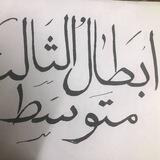 ابطال الثالث
متوسط